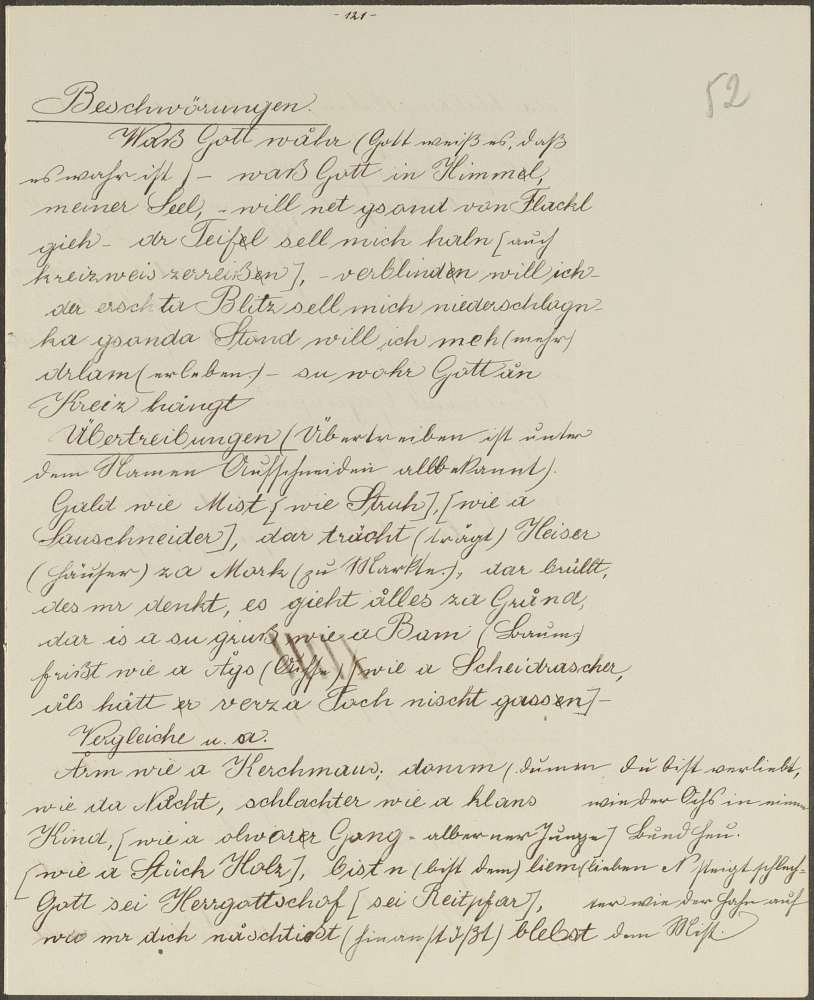 - 121 -
52
Beschwörungen.
Waß Gott wåhr (Gott weiß es, daß
es wahr ist) - waß Gott in Himmel,
meiner Seel, - will net gsond von Flackl
gieh - dr Teifel sell mich haln [auch
kreizweis zerreißen], - verblinden will ich -
der erschta Blitz sell mich niederschlagn -
ka gsonda Stond will ich meh (mehr)
drlam (erleben.) - su wohr Gott ån
Kreiz hängt
Übertreibungen (Übertreiben ist unter
dem Namen Aufschneiden allbekannt).
Gald wie Mist [wie Struh], [wie a
Sauschneider], dar trächt (trägt) Heiser
(Häuser) za Mork (zu Markte.), dar brüllt,
des mr denkt, es gieht ålles za Grånd,
dar is a su gruß wie a Bam (Baum)
frißt wie a Åys [wie a Scheidrascher,
åls hätt er verza Toch nischt gassen] -
Vergleiche u. a.
Årm wie a Kerchmaus; domm (dumm
wie da Nacht, schlachter wie a klans
Kind, [wie a olwarer Gong - alberner Junge]
[wie a Stück Holz], bist n (bist dem) liem (lieben
Gott sei Herrgottschof [sei Reitpfar],
wie mr dich nåschtißt (hinanstößt) blebst
du bist verliebt,
wie der Ochs in einem
Bund Heu.
N steigt schlech-
ter wie der Hahn auf
dem Mist.